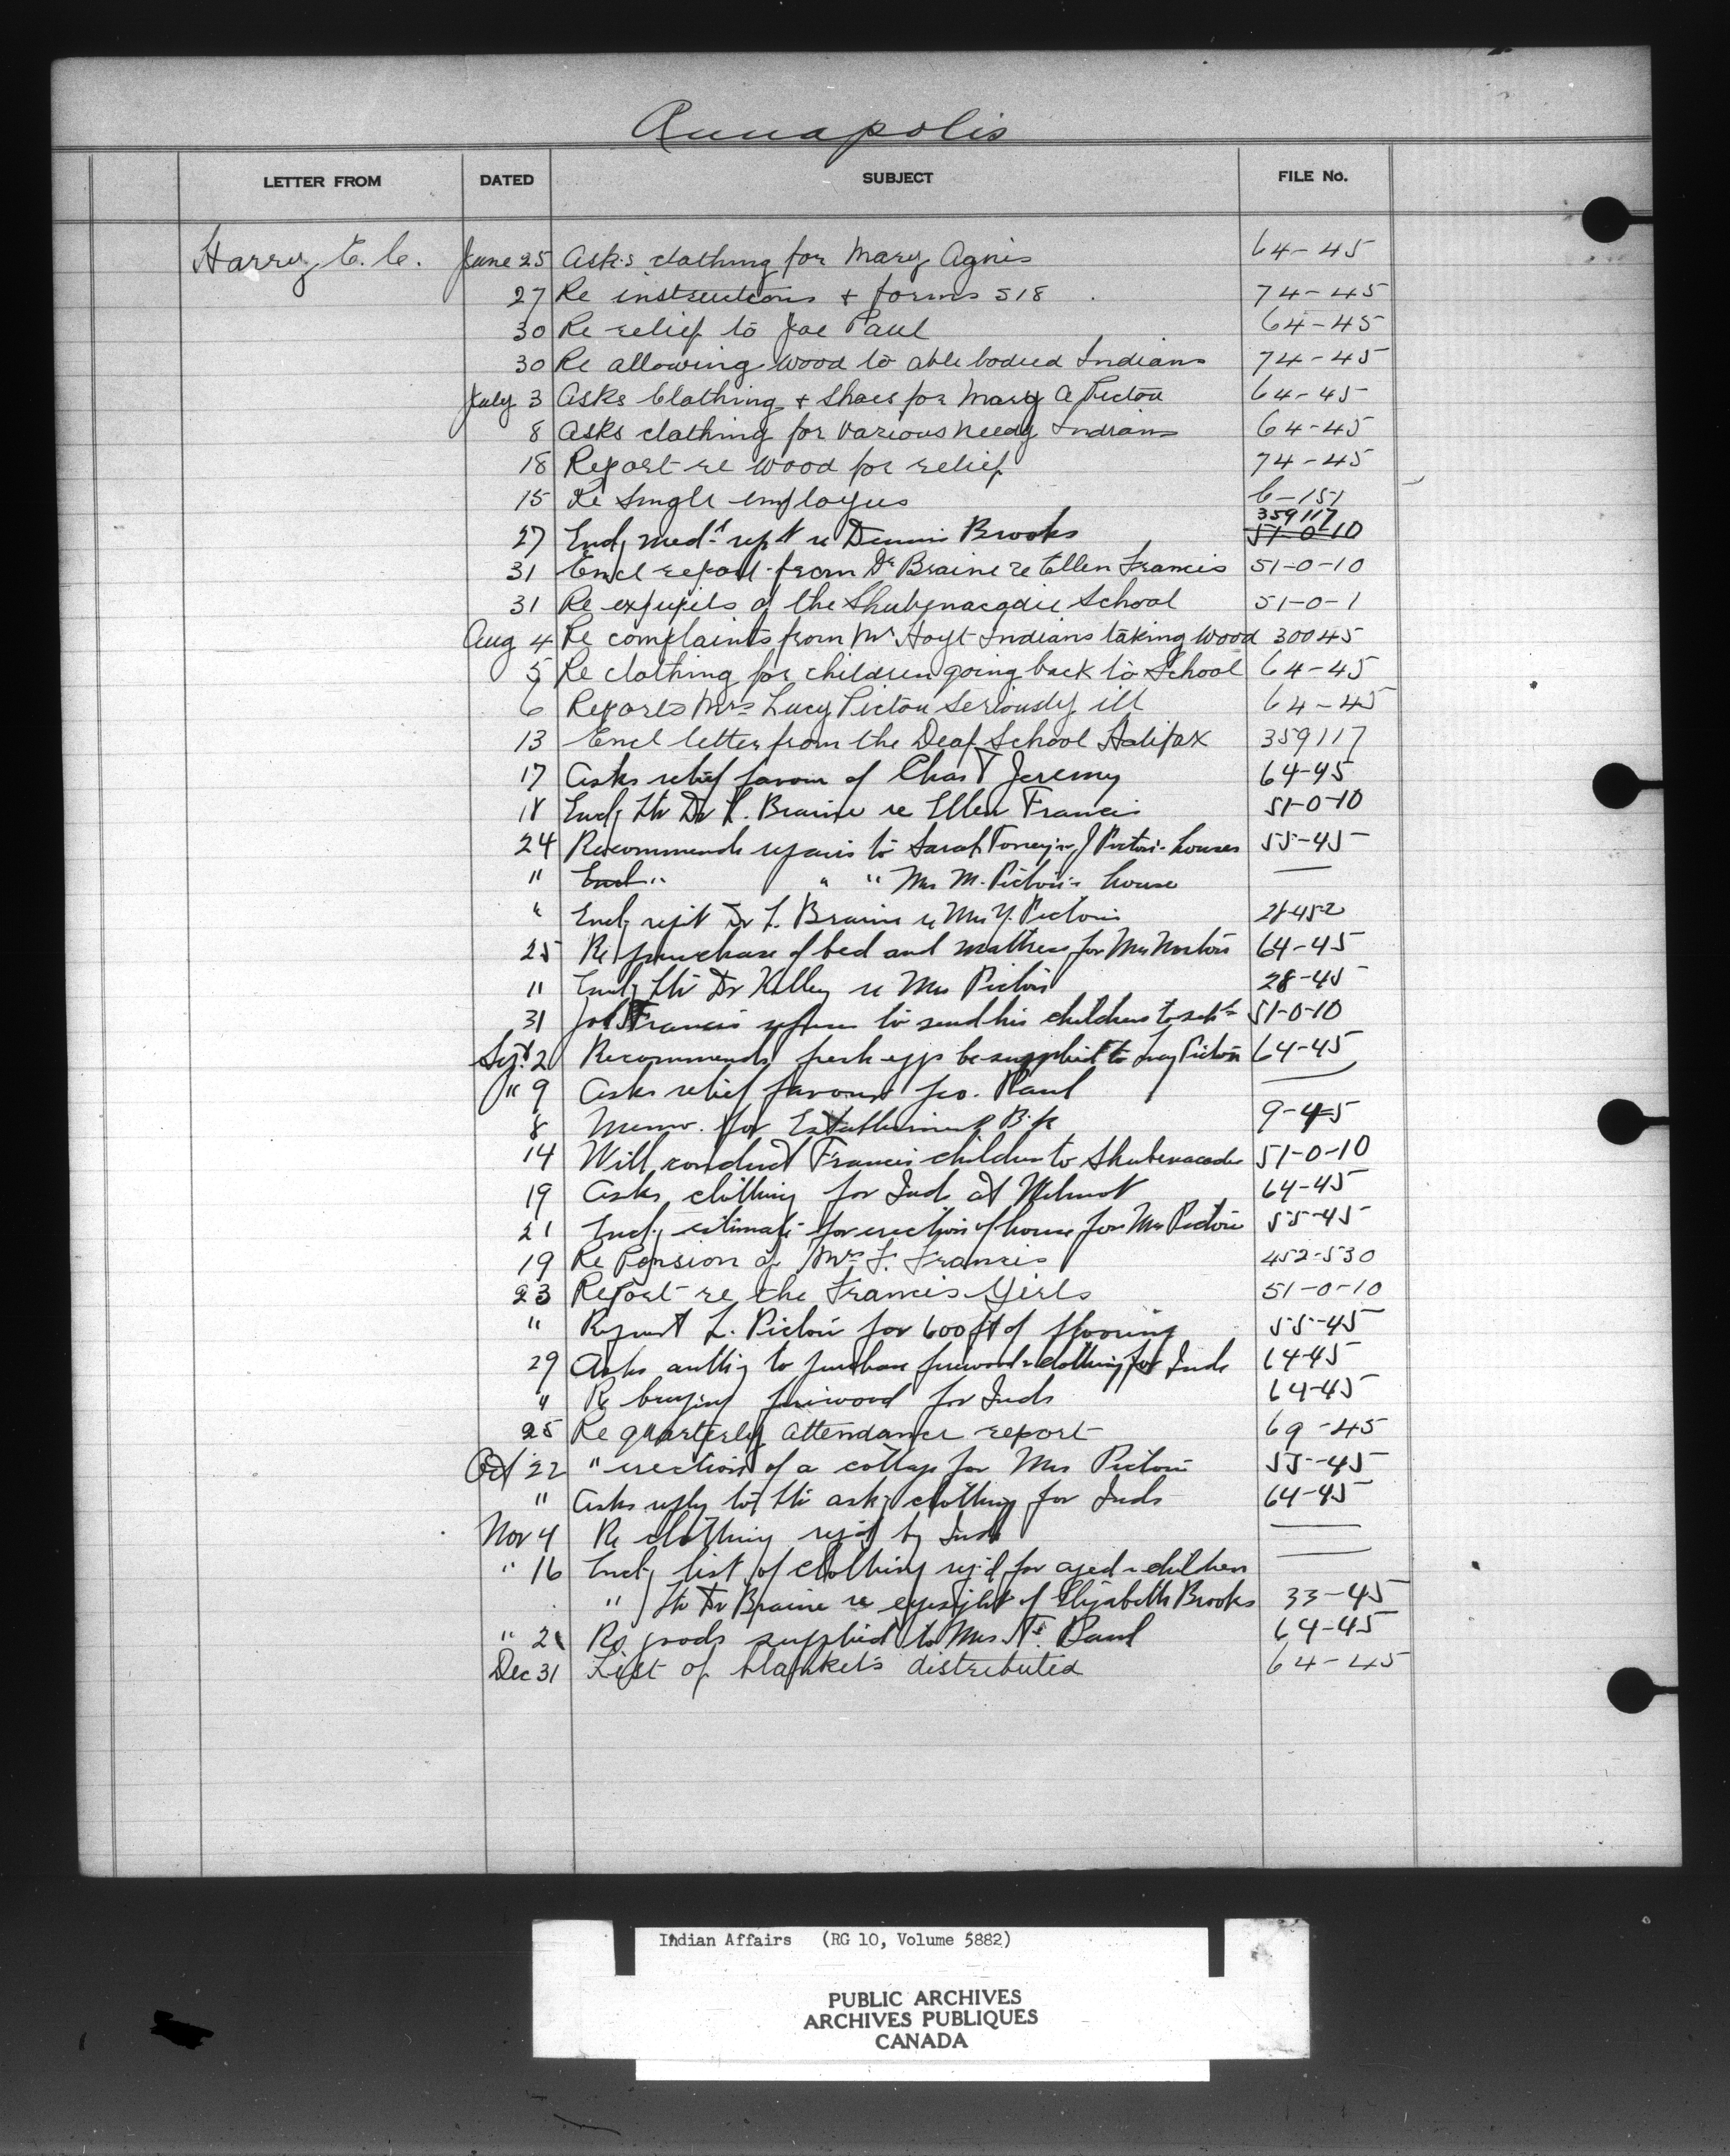 Annapolis
LETTER FROM DATED SUBJECT FILE No.
Harry E. C. June 25 Asks clothing for Mary Agnis 64-45
27 Re instructions + forms 518 74-45
30 Re relief to Joe Paul 64-45
30 Re allowing wood to able bodied Indians 74-45
July 3 Asks Clothing + Shoes for Mary A Pictou 64-45
8 Asks clothing for various needy Indians 64-45
18 Report re wood for relief 74-45
15 Re Single employees 6-151
359117
27 Encl'g med'l rep't re Dennis Brooks 51-0-10
31 Encl report from Dr Braine re Ellen Francis 51-0-10
31 Re expupils of the Shubenacadie School 51-0-1
Aug 4 Re complaints from Mr Hoyt Indians taking wood 30045
5 Re clothing for children going back to School 64-45
6 Reports Mrs Lucy Pictou seriously ill 64-45
13 Encl letter from the Deaf School Halifax 359117
17 Asks relief favour of Chas T Jeremy 64-45
18 Encl'g ltr Dr L. Braine re Ellen Francis 51-0-10
24 Recommends repairs to Sarah J Pictou's houses 55-45
" Encl " " " Mrs M. Pictou's house —
" Encl'g rep't Dr L. Braine re Mrs Y. Pictou 28-45-2
25 Re purchase of bed and mattress for Mrs 64-45
" Encl'g ltr Dr Kelley re Mrs Pictou 28-45
31 Jos Francis refuses to send his children to sch'l 51-0-10
Sept 2 Recommends fresh eggs be supplied to Lucy Pictou 64-45
" 9 Asks relief favour Jno. Paul —
8 Memo. for Establishment B'k 9-45
14 Will conduct Francis children to Shubenacadie 51-0-10
19 Asks clothing for Inds at Wilmot 64-45
21 Encl'g estimate for erection of house for Mrs Pictou 55-45
19 Re Pension of Mrs F. Francis 452-530
23 Report re the Francis Girls 51-0-10
" Request L. Pictou for 600 ft of flooring 55-45
29 Asks auth'y to purchase firewood & clothing for Inds 64-45
" Re buying firewood for Inds 64-45
25 Re quarterly attendance report 69-45
Oct 22 " erection of a cottage for Mrs Pictou 55-45
" Asks reply to ltr ask'g clothing for Inds 64-45
Nov 4 Re clothing req'd by Inds —
" 16 Encl'g list of clothing req'd for aged & children —
" ltr Dr Braine re eyesight of Elizabeth Brooks 33-45
" 21 Re goods supplied to Mrs Paul 64-45
Dec 31 List of blankets distributed 64-45
Indian Affairs (RG 10, Volume 5882)
PUBLIC ARCHIVES
ARCHIVES PUBLIQUES
CANADA